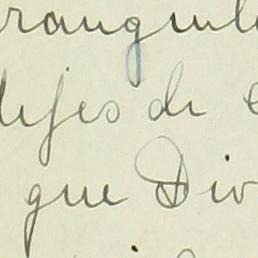 ranquil
dejes de
que Div